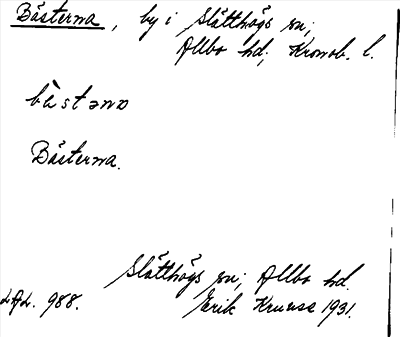 Bästerna, by i Slätthögs sn;
Allbo hd, Kronob. l.
bàstənɒ
Bästerna.
Slätthögs sn; Allbo hd.
Erik Kruuse 1931.
988.